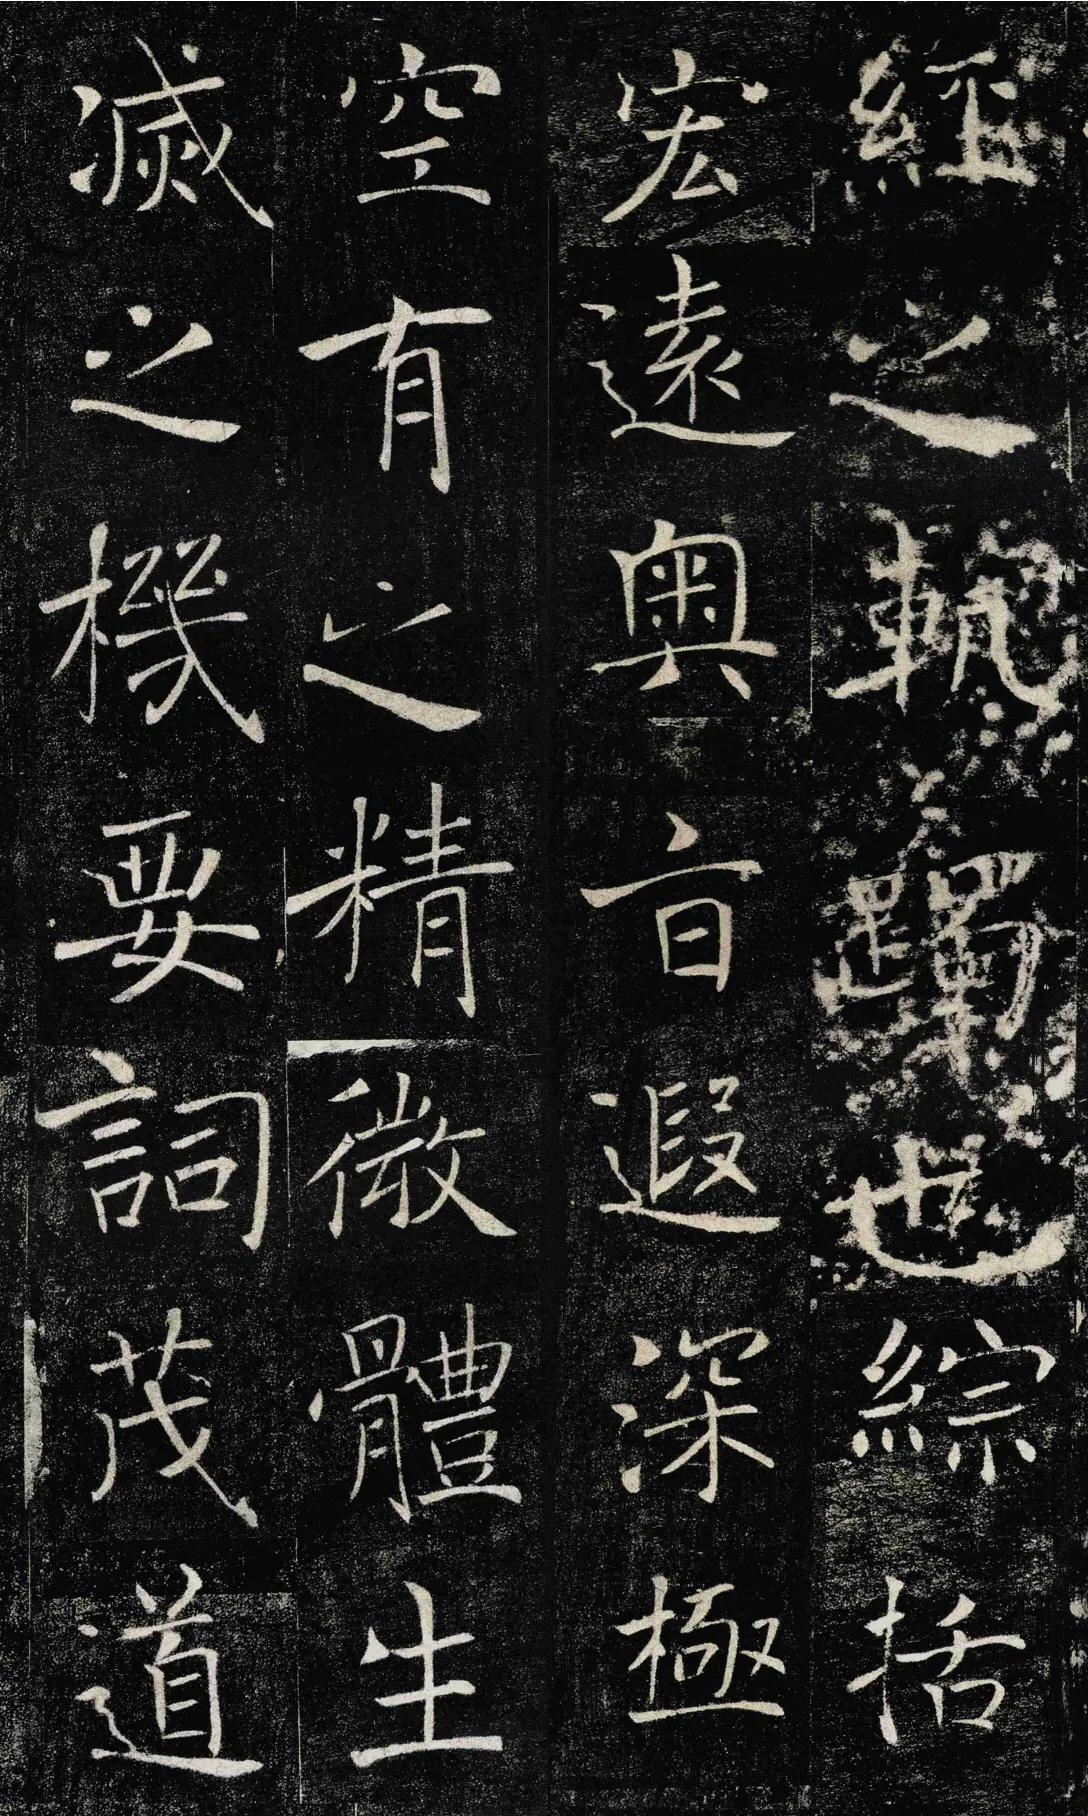 經之軌躅也綜括
宏遠奧旨遐深極
空有之精微體生
滅之機要詞茂道